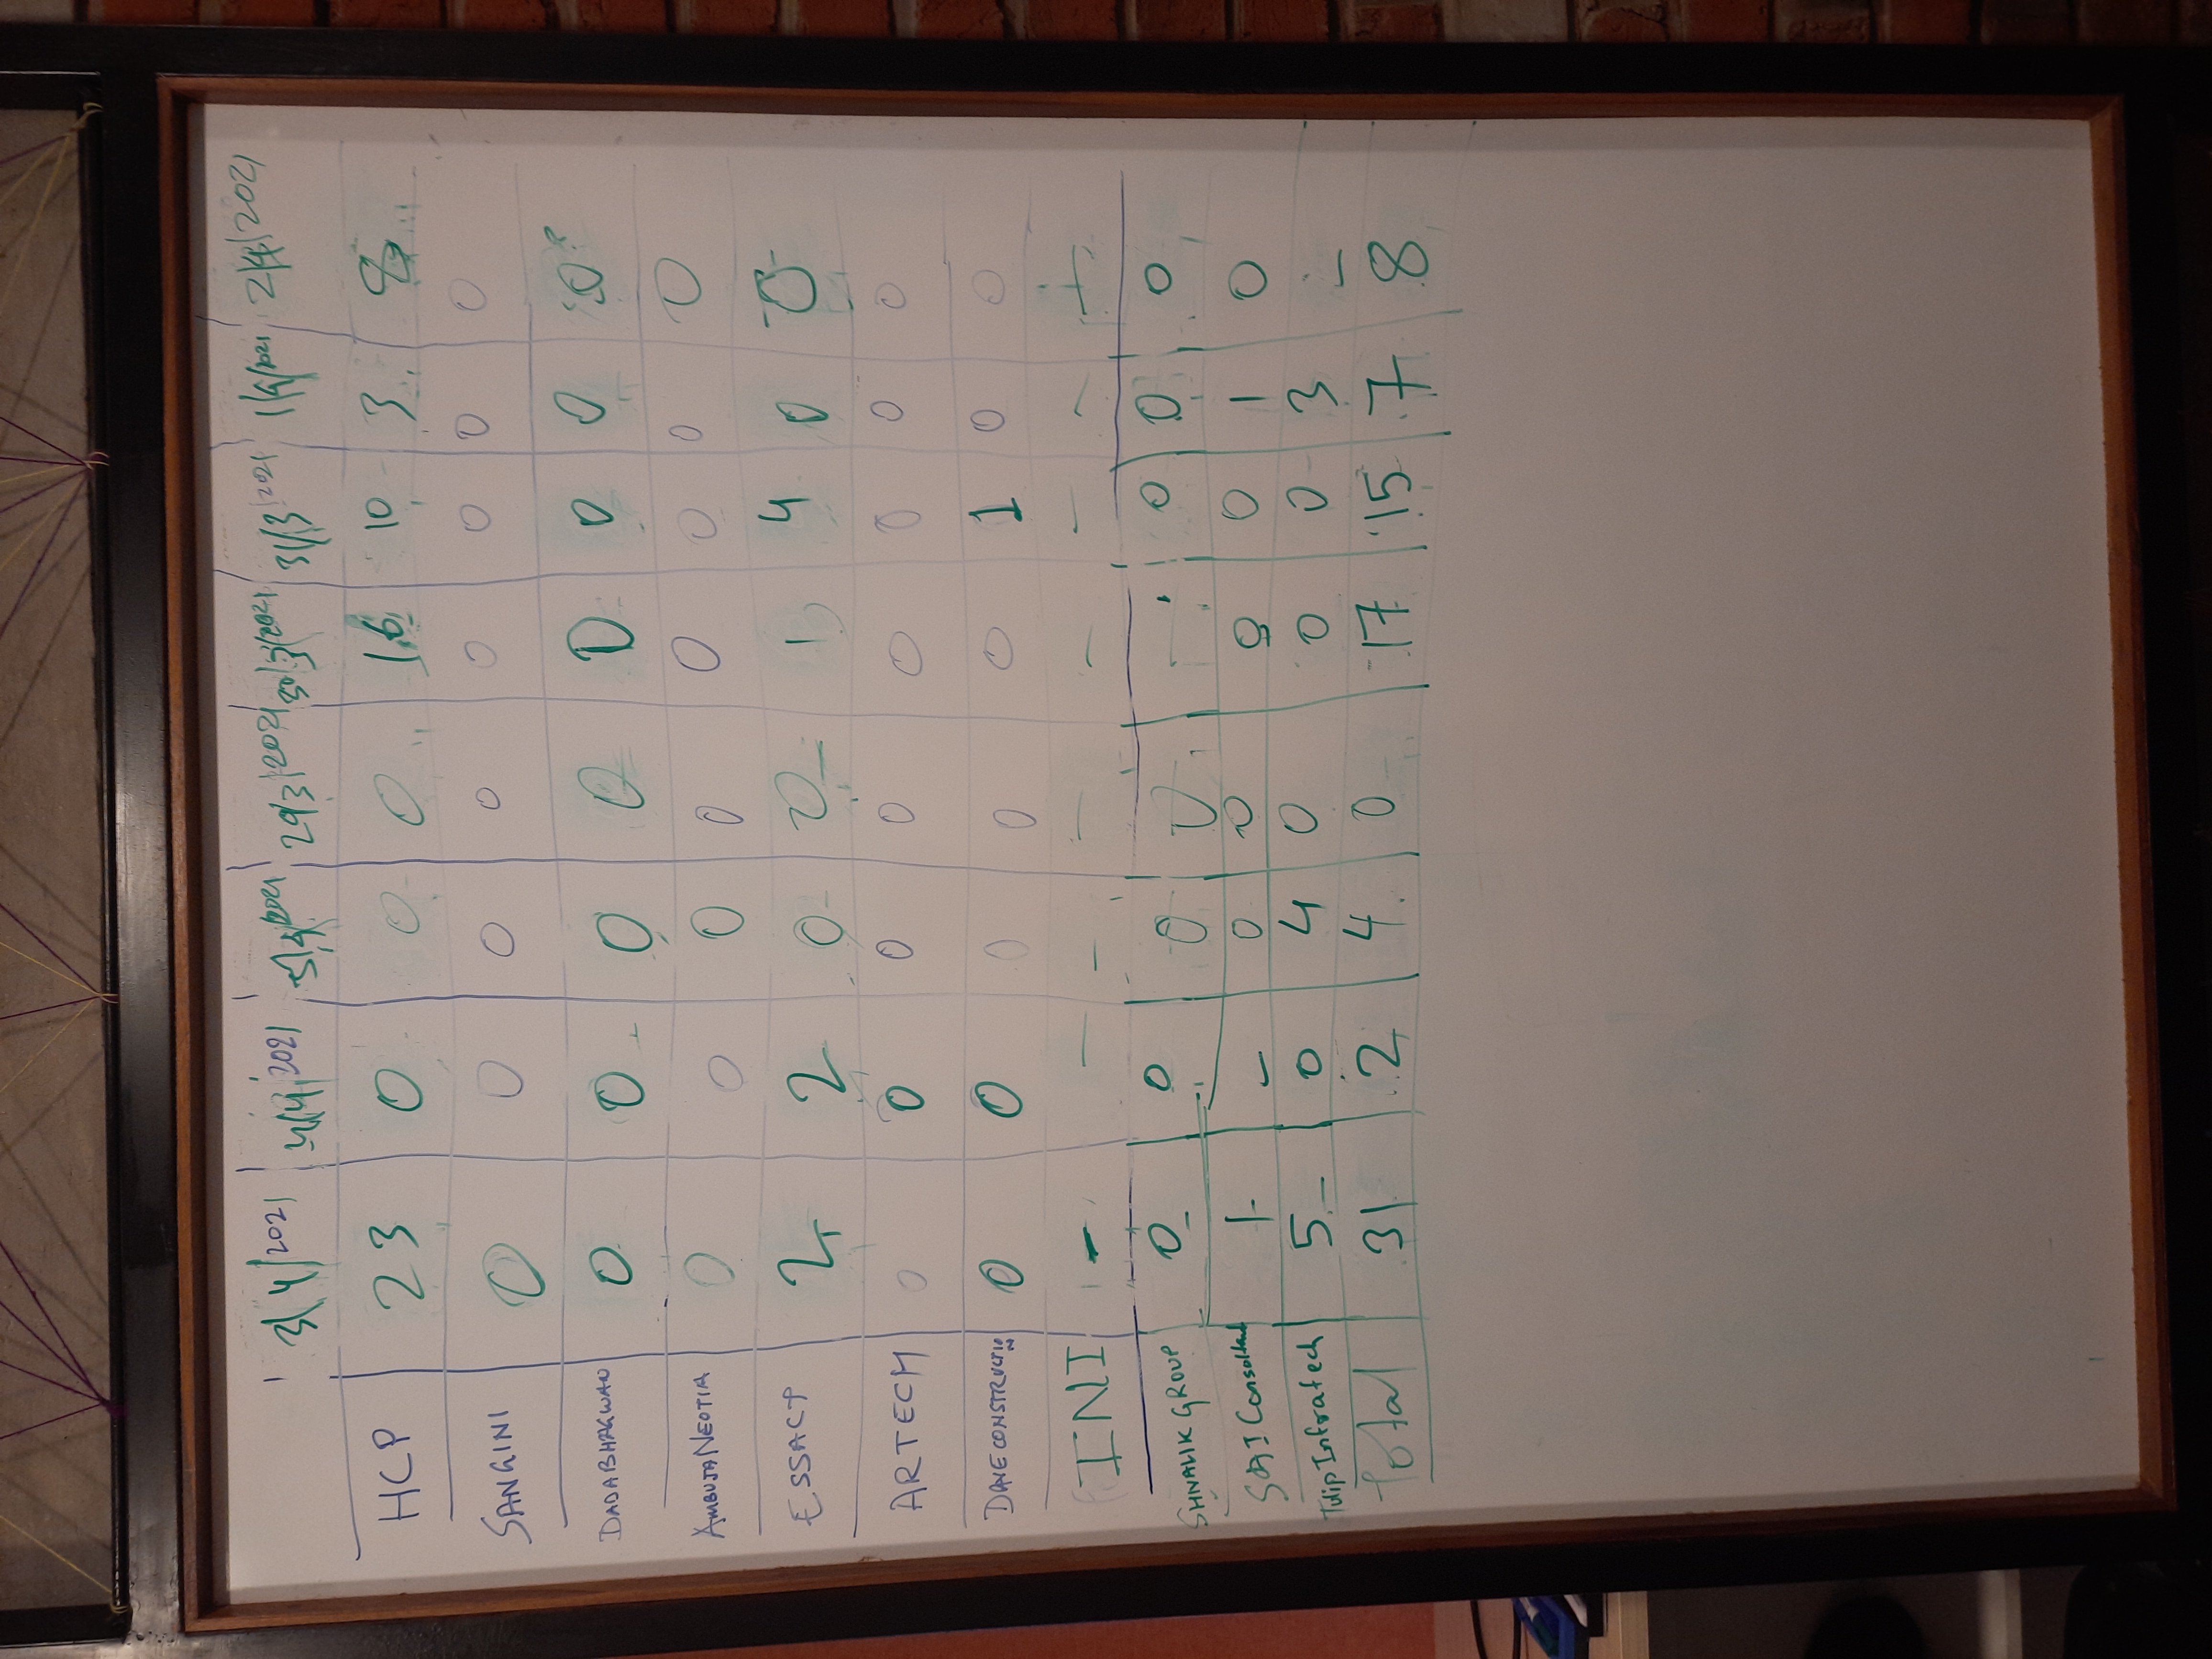 3/4/2021 4/4/2021 5/4/2021 29/3/2021 30/3/2021 31/3/2021 1/4/2021 2/4/2021
HCP 23 0 0 0 16 10 3 8
SANGINI 0 0 0 0 0 0 0 0
DADABHAGWAN 0 0 0 0 0 0 0 0
AMBUJA NEOTIA 0 0 0 0 0 0 0 0
ESSACP 2 2 0 0 1 4 0 0
ARTECH 0 0 0 0 0 0 0 0
DAVE CONSTRUCTION 0 0 0 0 0 1 0 0
INI - - - - - - - -
SHIVALIK GROUP 0 0 0 0 - 0 0 0
SAI Consoltant 1 - 0 0 0 0 1 0
Tulip Infratech 5 0 4 0 0 0 3 -
Total 31 2 4 0 17 15 7 8